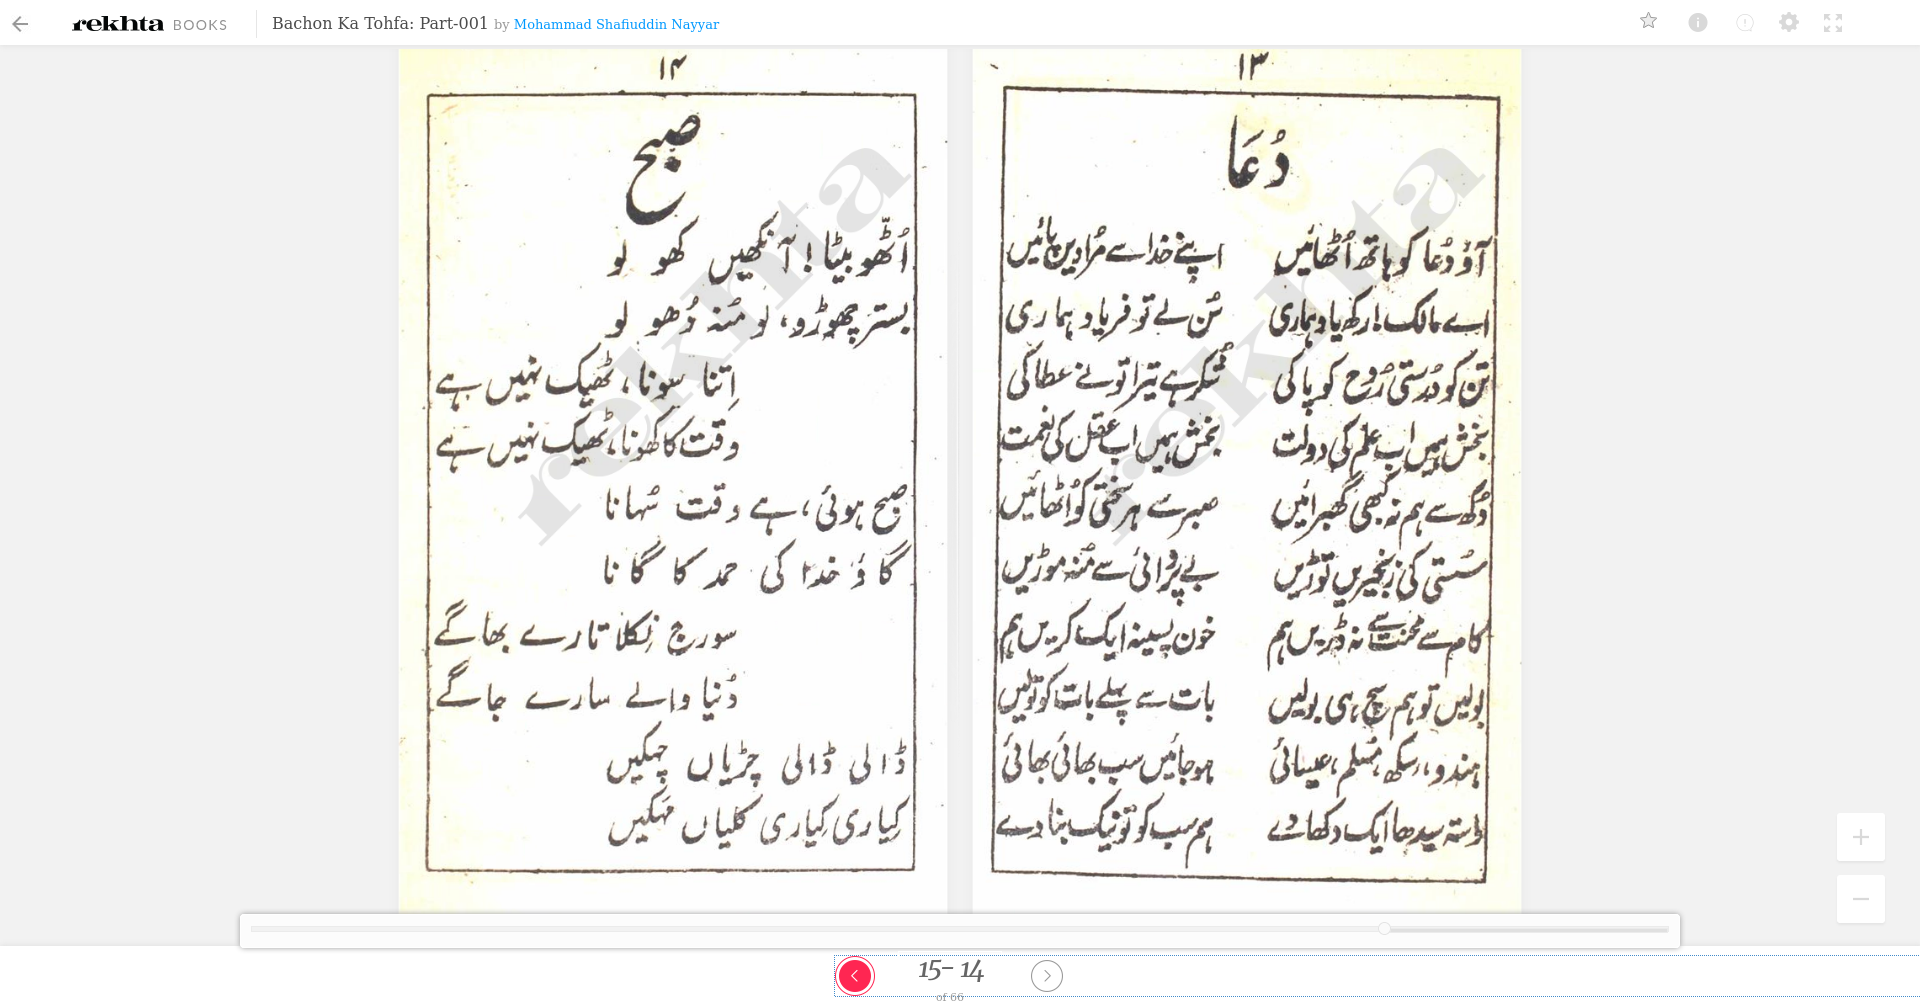 rekhta BOOKS Bachon Ka Tohfa: Part-001 by Mohammad Shafiuddin Nayyar
۱۳
دُعَا
آؤ دُعا کو ہاتھ اُٹھائیں اپنے خدا سے مُرادیں پائیں
اے مالک! رکھ یاد ہماری سُن لے تو فریاد ہماری
تن کو دُرستی رُوح کو پاکی شکر ہے تیرا تو نے عطا کی
بخش ہمیں اب علم کی دولت بخش ہمیں اب عقل کی نعمت
دُکھ سے ہم نہ کبھی گھبرائیں صبر سے ہر سختی کو اُٹھائیں
سُستی کی زنجیریں توڑیں بے پرْوائی سے مُنہ موڑیں
کام سے محنت سے نہ ڈریں ہم خون پسینہ ایک کریں ہم
بولیں تو ہم سچ ہی بولیں بات سے پہلے بات کو تولیں
ہندو، سِکھ، مُسلم، عیسائی ہوجائیں سب بھائی بھائی
راستہ سیدھا ایک دکھا دے ہم سب کو تو نیک بنا دے
۱۴
صبح
اُٹّھو بیٹا! آنکھیں کھو لو
بستر چھوڑو، لو مُنہ دُھو لو
اِتنا سونا، ٹھیک نہیں ہے
وقت کا کھونا، ٹھیک نہیں ہے
صبح ہوئی، ہے وقت سُہانا
گاؤ خدا کی حمد کا گانا
سورج نِکلا تارے بھاگے
دُنیا والے سارے جاگے
ڈالی ڈالی چڑیاں چہکیں
کیاری کیاری کلیاں مہکیں
rekhta
rekhta
15- 14
of 66